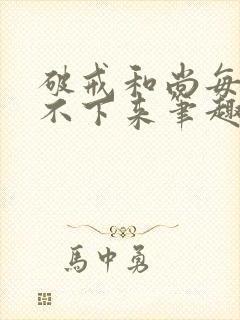 破戒和尚每
不下来笔趣
馬中勇